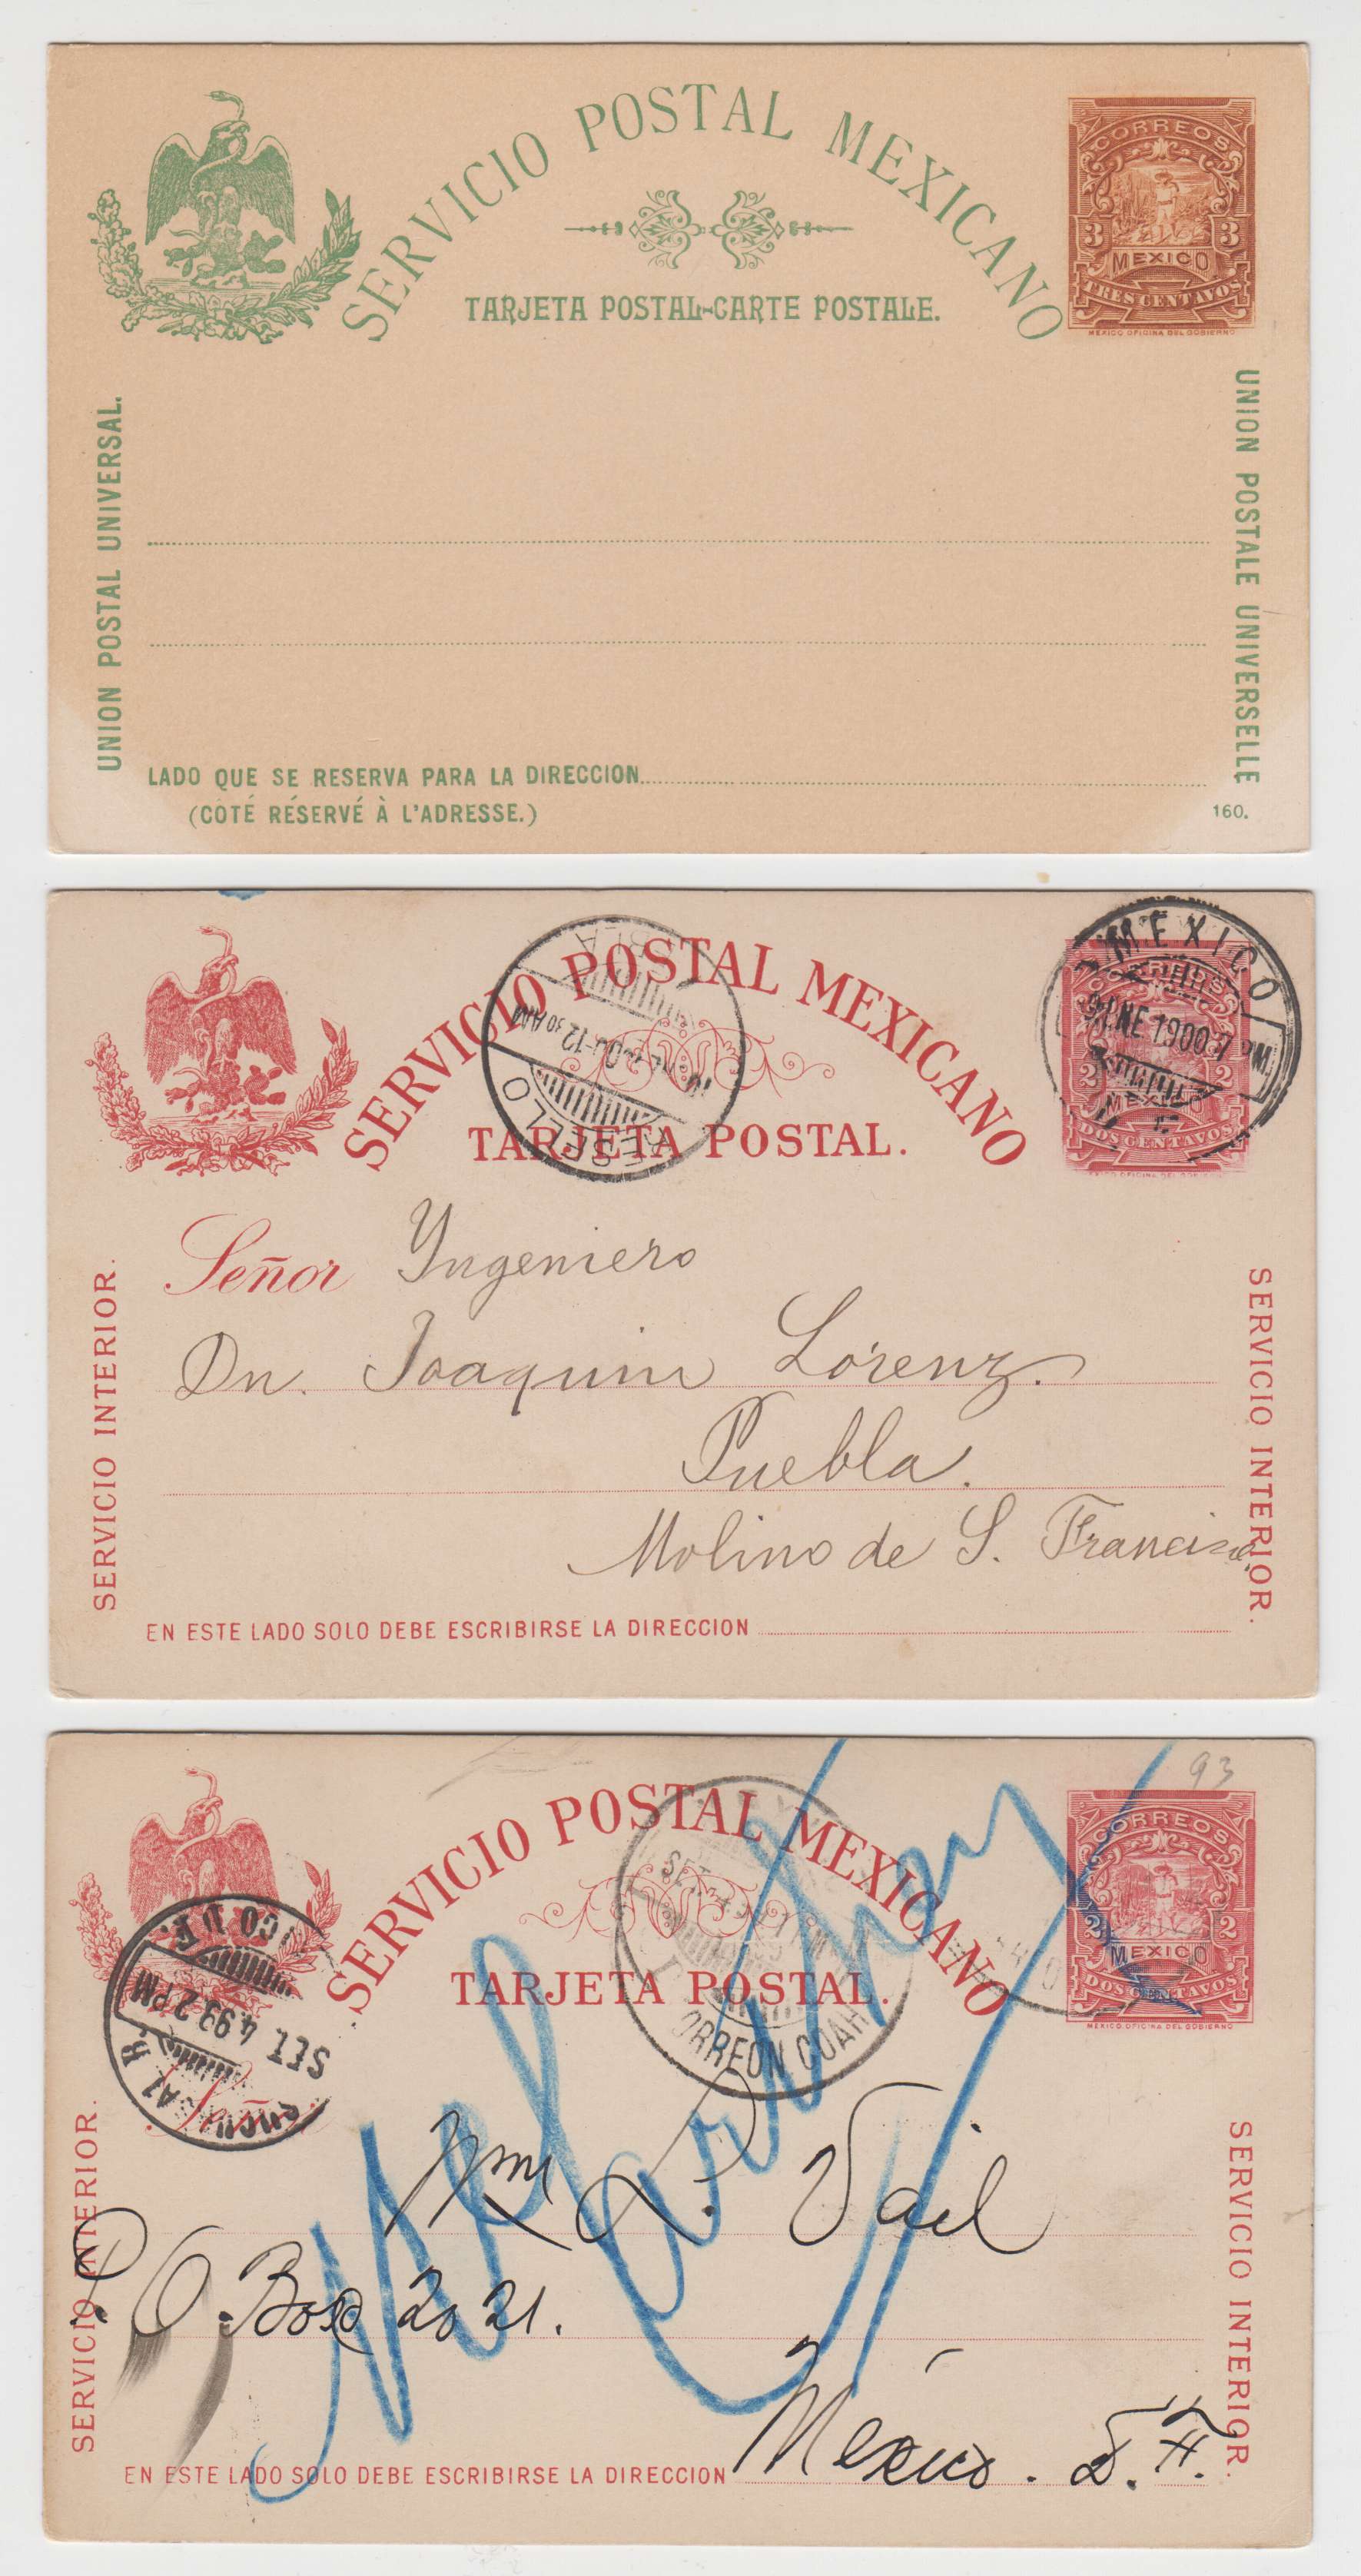 SERVICIO POSTAL MEXICANO
TARJETA POSTAL-CARTE POSTALE.
CORREOS
3 3
MEXICO
TRES CENTAVOS
MEXICO OFICINA DEL GOBIERNO
UNION POSTAL UNIVERSAL.
UNION POSTALE UNIVERSELLE
LADO QUE SE RESERVA PARA LA DIRECCION
(CÔTÉ RÉSERVÉ À L'ADRESSE.)
160.
SERVICIO POSTAL MEXICANO
TARJETA POSTAL.
RESELLO
12 30 AM
MEXICO
NE 1900 7 PM
CORREOS
2 2
MEXICO
DOS CENTAVOS
Señor Yngeniero
Dn. Joaquin Lorenz.
Puebla.
Molino de S. Francisco
SERVICIO INTERIOR.
SERVICIO INTERIOR.
EN ESTE LADO SOLO DEBE ESCRIBIRSE LA DIRECCION
93
SERVICIO POSTAL MEXICANO
TARJETA POSTAL.
CORREOS
2 2
MEXICO
DOS CENTAVOS
MEXICO OFICINA DEL GOBIERNO
SET. 4 99 2 PM
ORREON COAH
Señor
Wm L. Vail
P. O. Box 2021.
México. D. F.
SERVICIO INTERIOR.
SERVICIO INTERIOR.
EN ESTE LADO SOLO DEBE ESCRIBIRSE LA DIRECCION